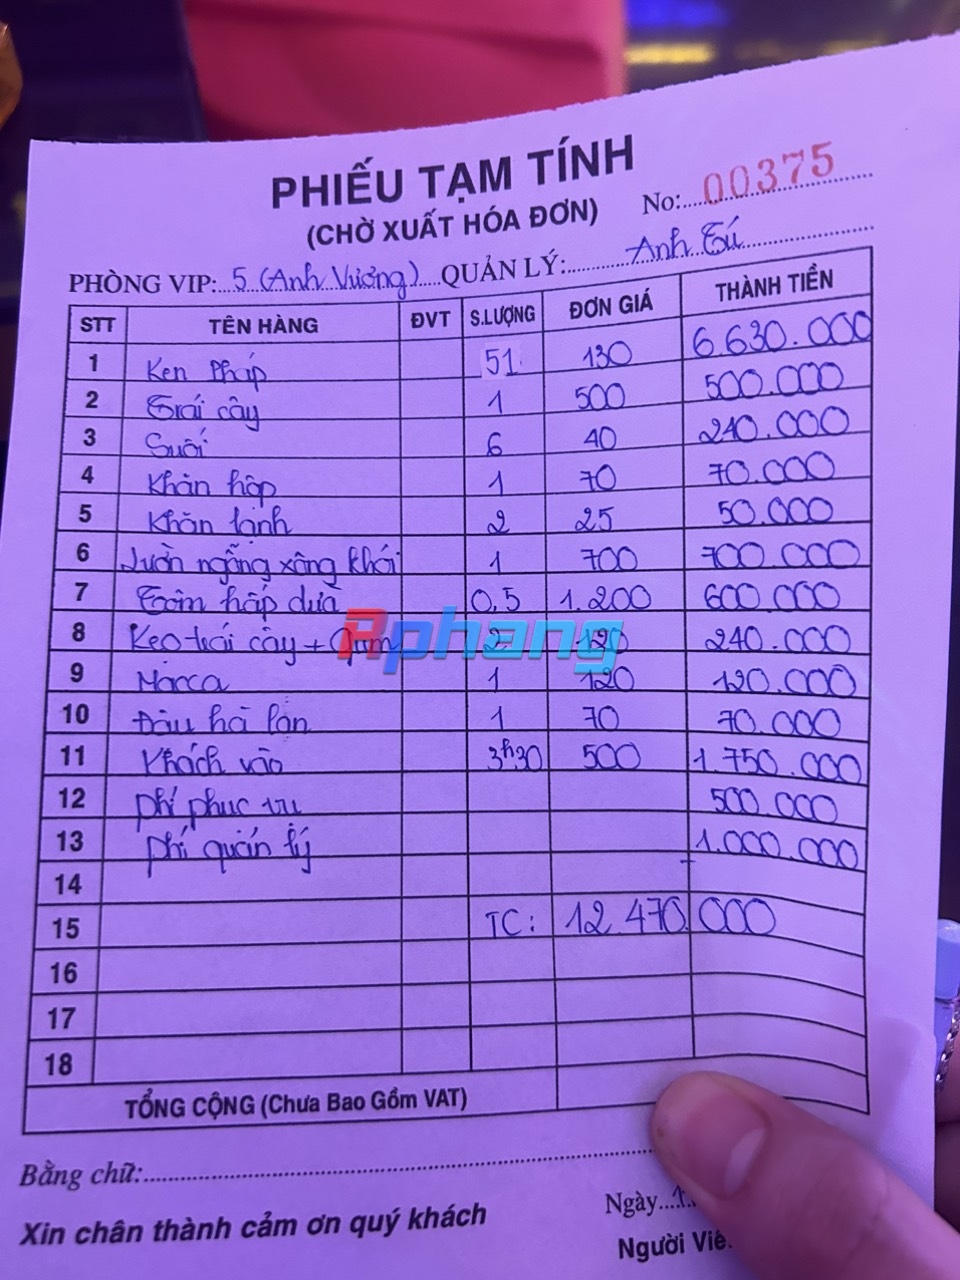 PHIẾU TẠM TÍNH
(CHỜ XUẤT HÓA ĐƠN) No: 00375
PHÒNG VIP: 5 (Anh Vương) QUẢN LÝ: Anh Tú
STT TÊN HÀNG ĐVT S.LƯỢNG ĐƠN GIÁ THÀNH TIỀN
1 Ken Pháp 51 130 6.630.000
2 Trái cây 1 500 500.000
3 Suối 6 40 240.000
4 Khăn hộp 1 70 70.000
5 Khăn lạnh 2 25 50.000
6 Lườn ngỗng xông khói 1 700 700.000
7 Tôm hấp dừa 0,5 1.200 600.000
8 Kẹo trái cây + Gum 2 120 240.000
9 Macca 1 120 120.000
10 Đậu hà lan 1 70 70.000
11 Khách vào 3h30 500 1.750.000
12 phí phục vụ 500.000
13 phí quản lý 1.000.000
14
15 TC: 12.470.000
16
17
18
TỔNG CỘNG (Chưa Bao Gồm VAT)
Bằng chữ:
Ngày
Xin chân thành cảm ơn quý khách
Người Viế
Rphang